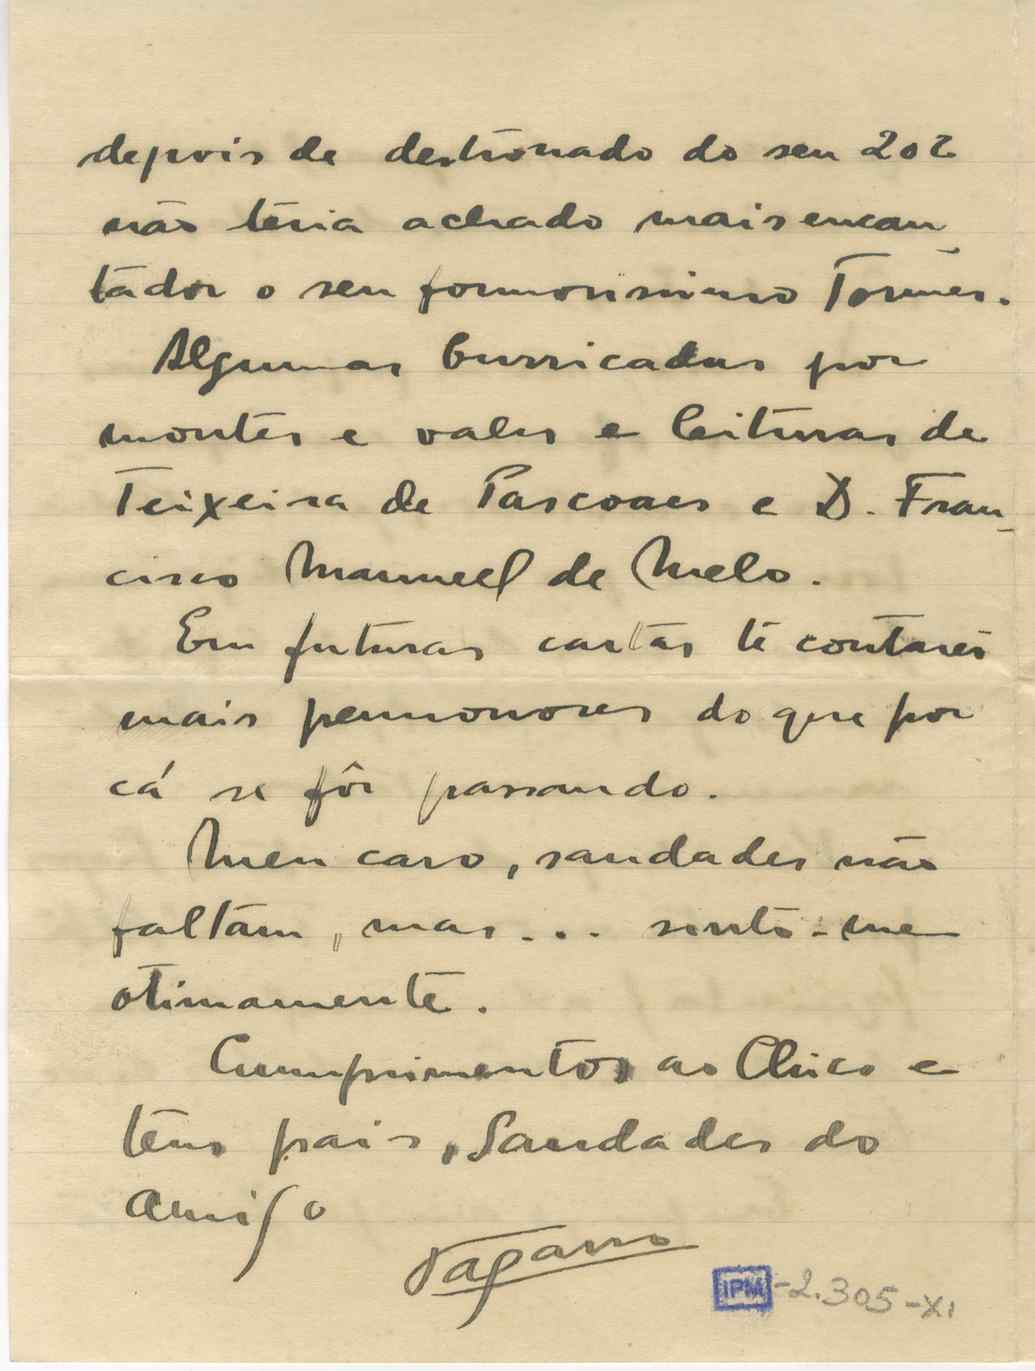 depois de destronado do seu 202
não teria achado mais encan-
tador o seu formosissimo Tormes.
Algumas burricadas por
montes e vales e leituras de
Teixeira de Pascoaes e D. Fran-
cisco Manuel de Melo.
Em futuras cartas te contarei
mais pormenores do que por
cá se fôr passando.
Meu caro, saudades não
faltam, mas... sinto-me
otimamente.
Cumprimentos ao Chico e
teus pais, Saudades do
amigo
IPM -2.305-XI